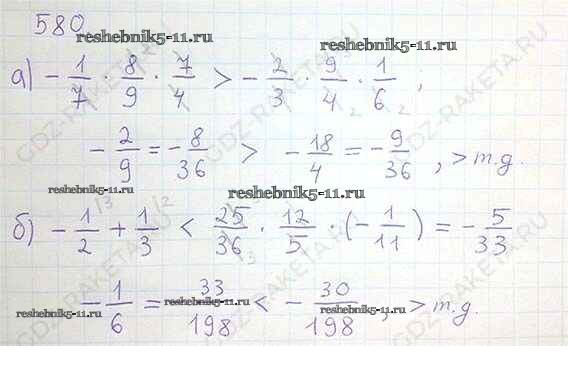 580
reshebnik5-11.ru
а) - 1/7 · 8/9 · 7/4 > - 2/3 · 9/4 · 1/6 ;
- 2/9 = - 8/36 > - 18/4 = - 9/36 , > т.д.
reshebnik5-11.ru
reshebnik5-11.ru
б) - 1/2 + 1/3 < 25/36 · 12/5 · (- 1/11) = - 5/33
- 1/6 = 33/198 < - 30/198 , > т.д.
reshebnik5-11.ru reshebnik5-11.ru
reshebnik5-11.ru
GDZ-RAKETA.RU